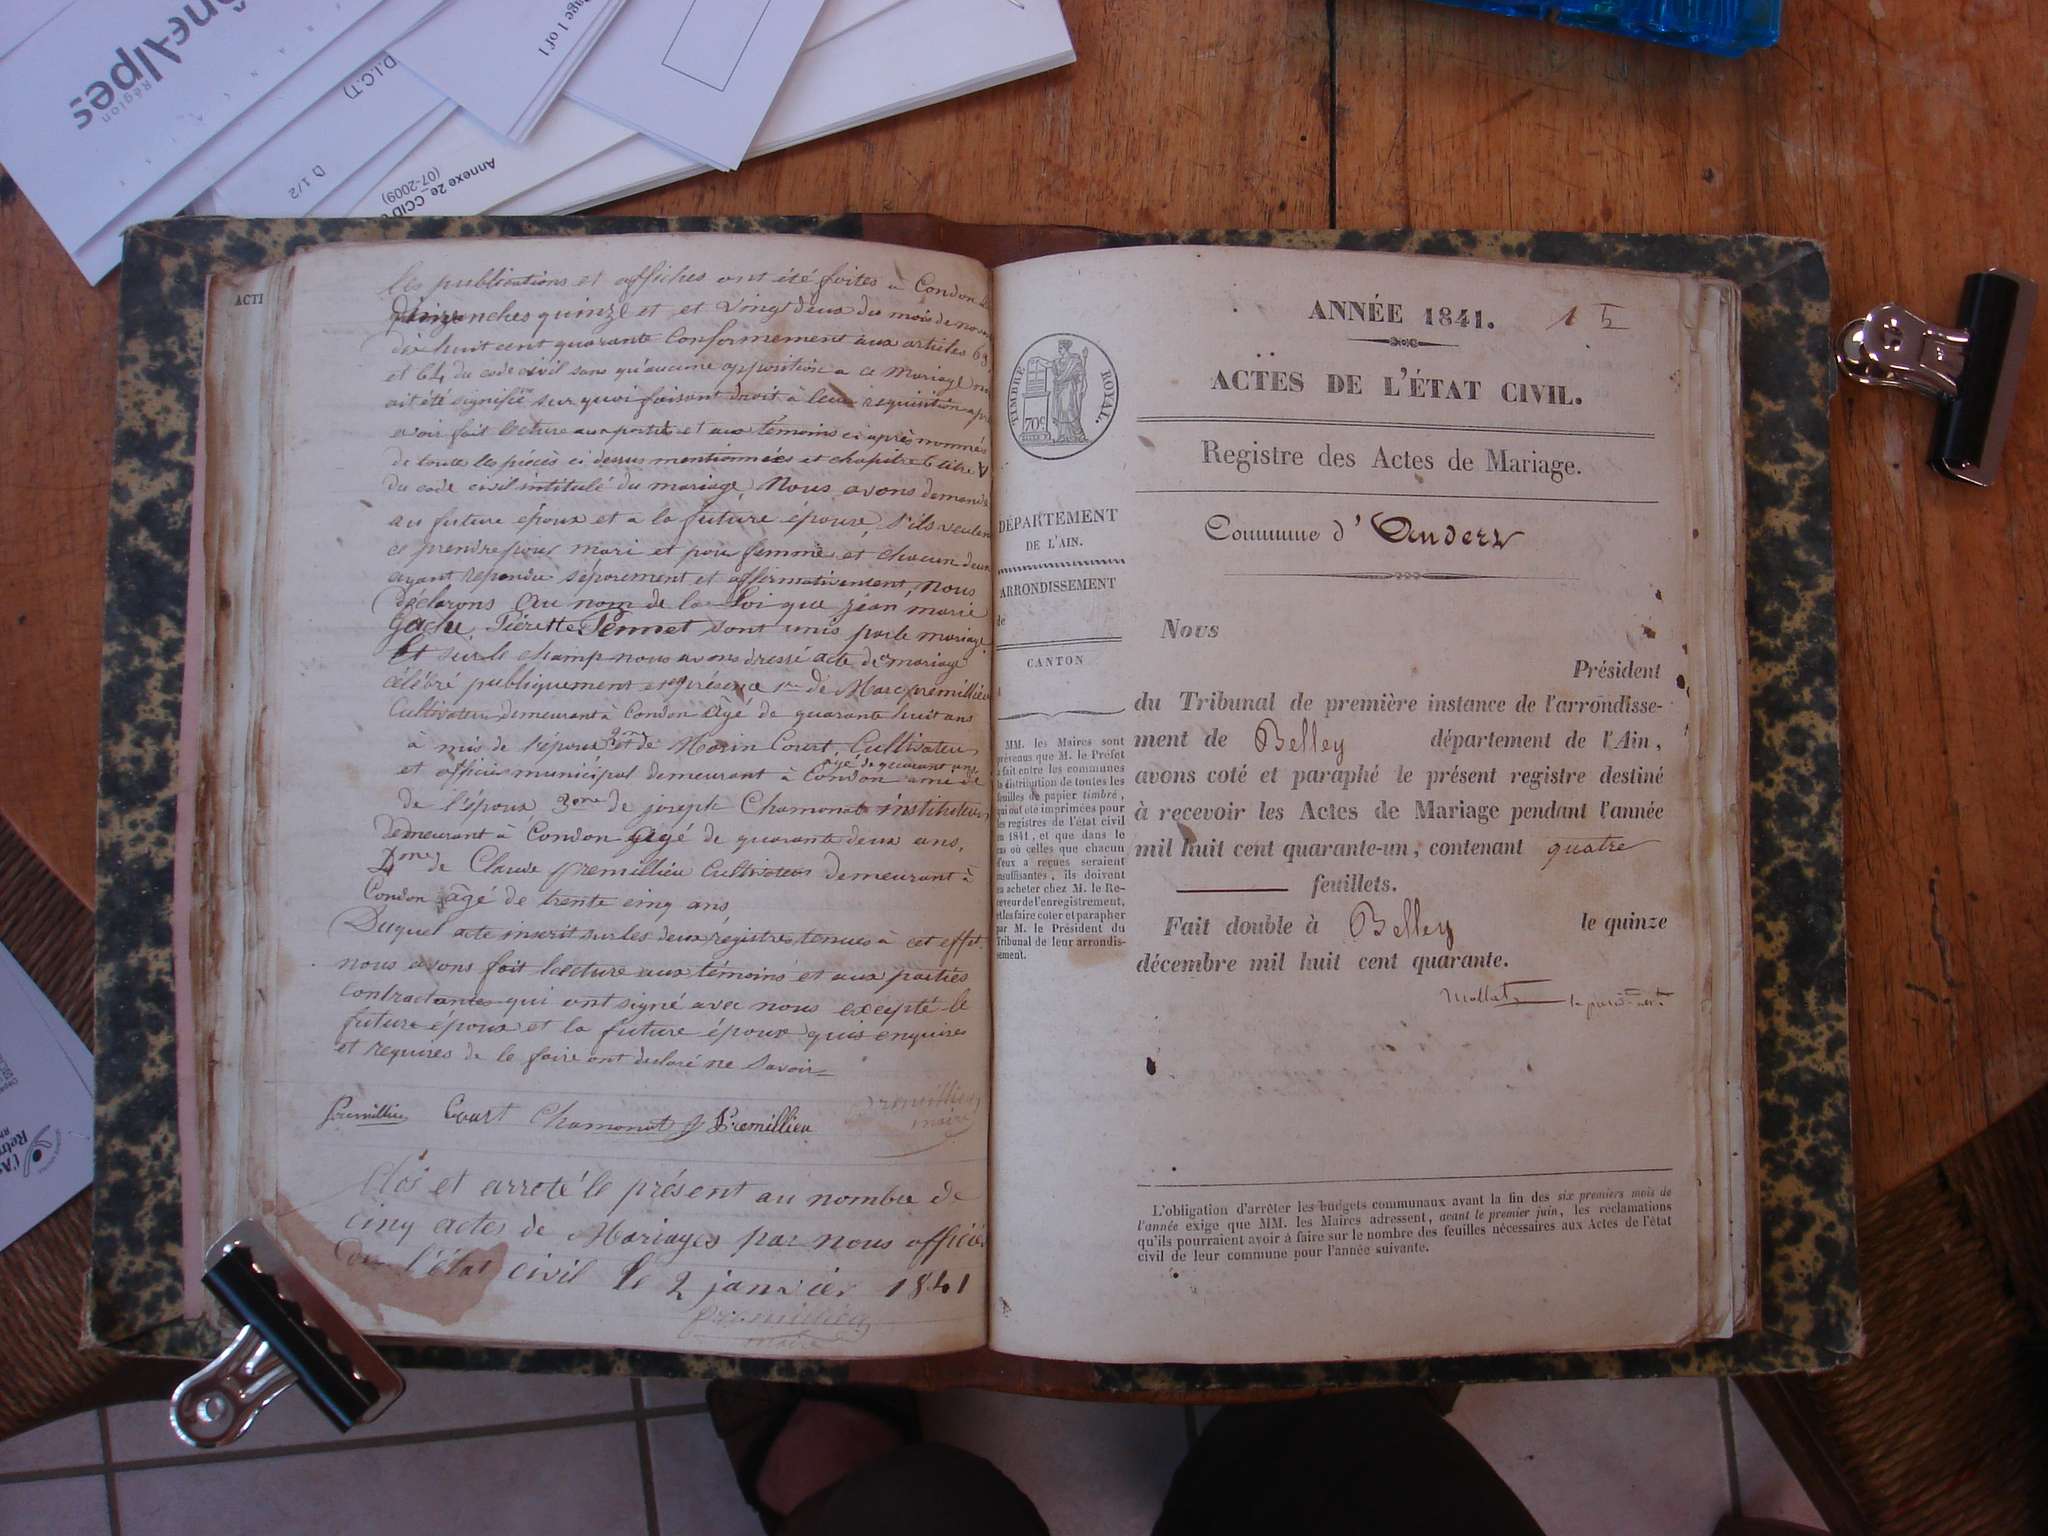 Rhône-Alpes
Région
D.I.C.T)
Page 1 of 1
D 1/2
Annexe 2e_CCID
(07-2009)
ACTI
les publications et affiches ont été faites a Condon
dimanches quinze et et vingt deux du mois de
dix huit cent quarante Conformement aux articles 63
et 64 du code civil sans qu'aucune opposition a ce Mariage
ait été signifiée sur quoi faisant droit à leur requisition
avoir fait lecture aux parties et aux témoins ci après nommés
de toute les pièces ci dessus mentionnées et chapitre 6 titre V
du code civil intitulé du mariage, Nous avons demandé
au future époux et a la future épouse, s'ils veulent
se prendre pour mari et pour femme et chacun deux
ayant repondu séparement et affirmativement, Nous
Déclarons Au nom de la Loi que jéan marie
Gache, Piérette Pennet sont unis par le mariage
Et sur le champ nous avons dressé acte de mariage
célébré publiquement en présence 1er de Marc premillieu
Cultivateur demeurant à Condon Agé de quarante huit ans
à mis de l'époux 2me et de Morin Court, Cultivateur
et officier municipal demeurant à Condon âgé de quarante ans ami de
de l'époux, 3eme de joseph Chamonat instituteur
demeurant à Condon agé de quarante deux ans,
4me de Claude premillieu Cultivateur demeurant à
Condon âgé de trente cinq ans
Duquel acte inscrit sur les deux régistres tenues à cet effet.
nous avons fait lecture aux témoins et aux parties
contractantes qui ont signé avec nous excepté le
future époux et la future épouse quis enquires
et requires de le faire ont declaré ne savoir
Premillieu Court Chamonat J Premillieu
Premillieu
maire
Clos et arroté le présent au nombre de
cinq actes de Mariages par nous officier
de l'état civil le 2 janvier 1841
Premillieu
maire
ANNÉE 1841.
1
ACTES DE L'ÉTAT CIVIL.
TIMBRE ROYAL.
70c
Registre des Actes de Mariage.
DÉPARTEMENT
DE L'AIN.
ARRONDISSEMENT
de
CANTON
Commune d' Andert
Nous
Président
du Tribunal de première instance de l'arrondisse-
ment de Belley département de l'Ain,
avons coté et paraphé le présent registre destiné
à recevoir les Actes de Mariage pendant l'année
mil huit cent quarante-un, contenant quatre
feuillets.
Fait double à Belley le quinze
décembre mil huit cent quarante.
Mollet
MM. les Maires sont
prévenus que M. le Préfet
a fait entre les communes
la distribution de toutes les
feuilles de papier timbré,
qui ont été imprimées pour
les registres de l'état civil
en 1841, et que dans le
cas où celles que chacun
d'eux a reçues seraient
insuffisantes, ils doivent
en acheter chez M. le Re-
ceveur de l'enregistrement,
et les faire coter et parapher
par M. le Président du
Tribunal de leur arrondis-
sement.
L'obligation d'arrêter les budgets communaux avant la fin des six premiers mois de
l'année exige que MM. les Maires adressent, avant le premier juin, les réclamations
qu'ils pourraient avoir à faire sur le nombre des feuilles nécessaires aux Actes de l'état
civil de leur commune pour l'année suivante.